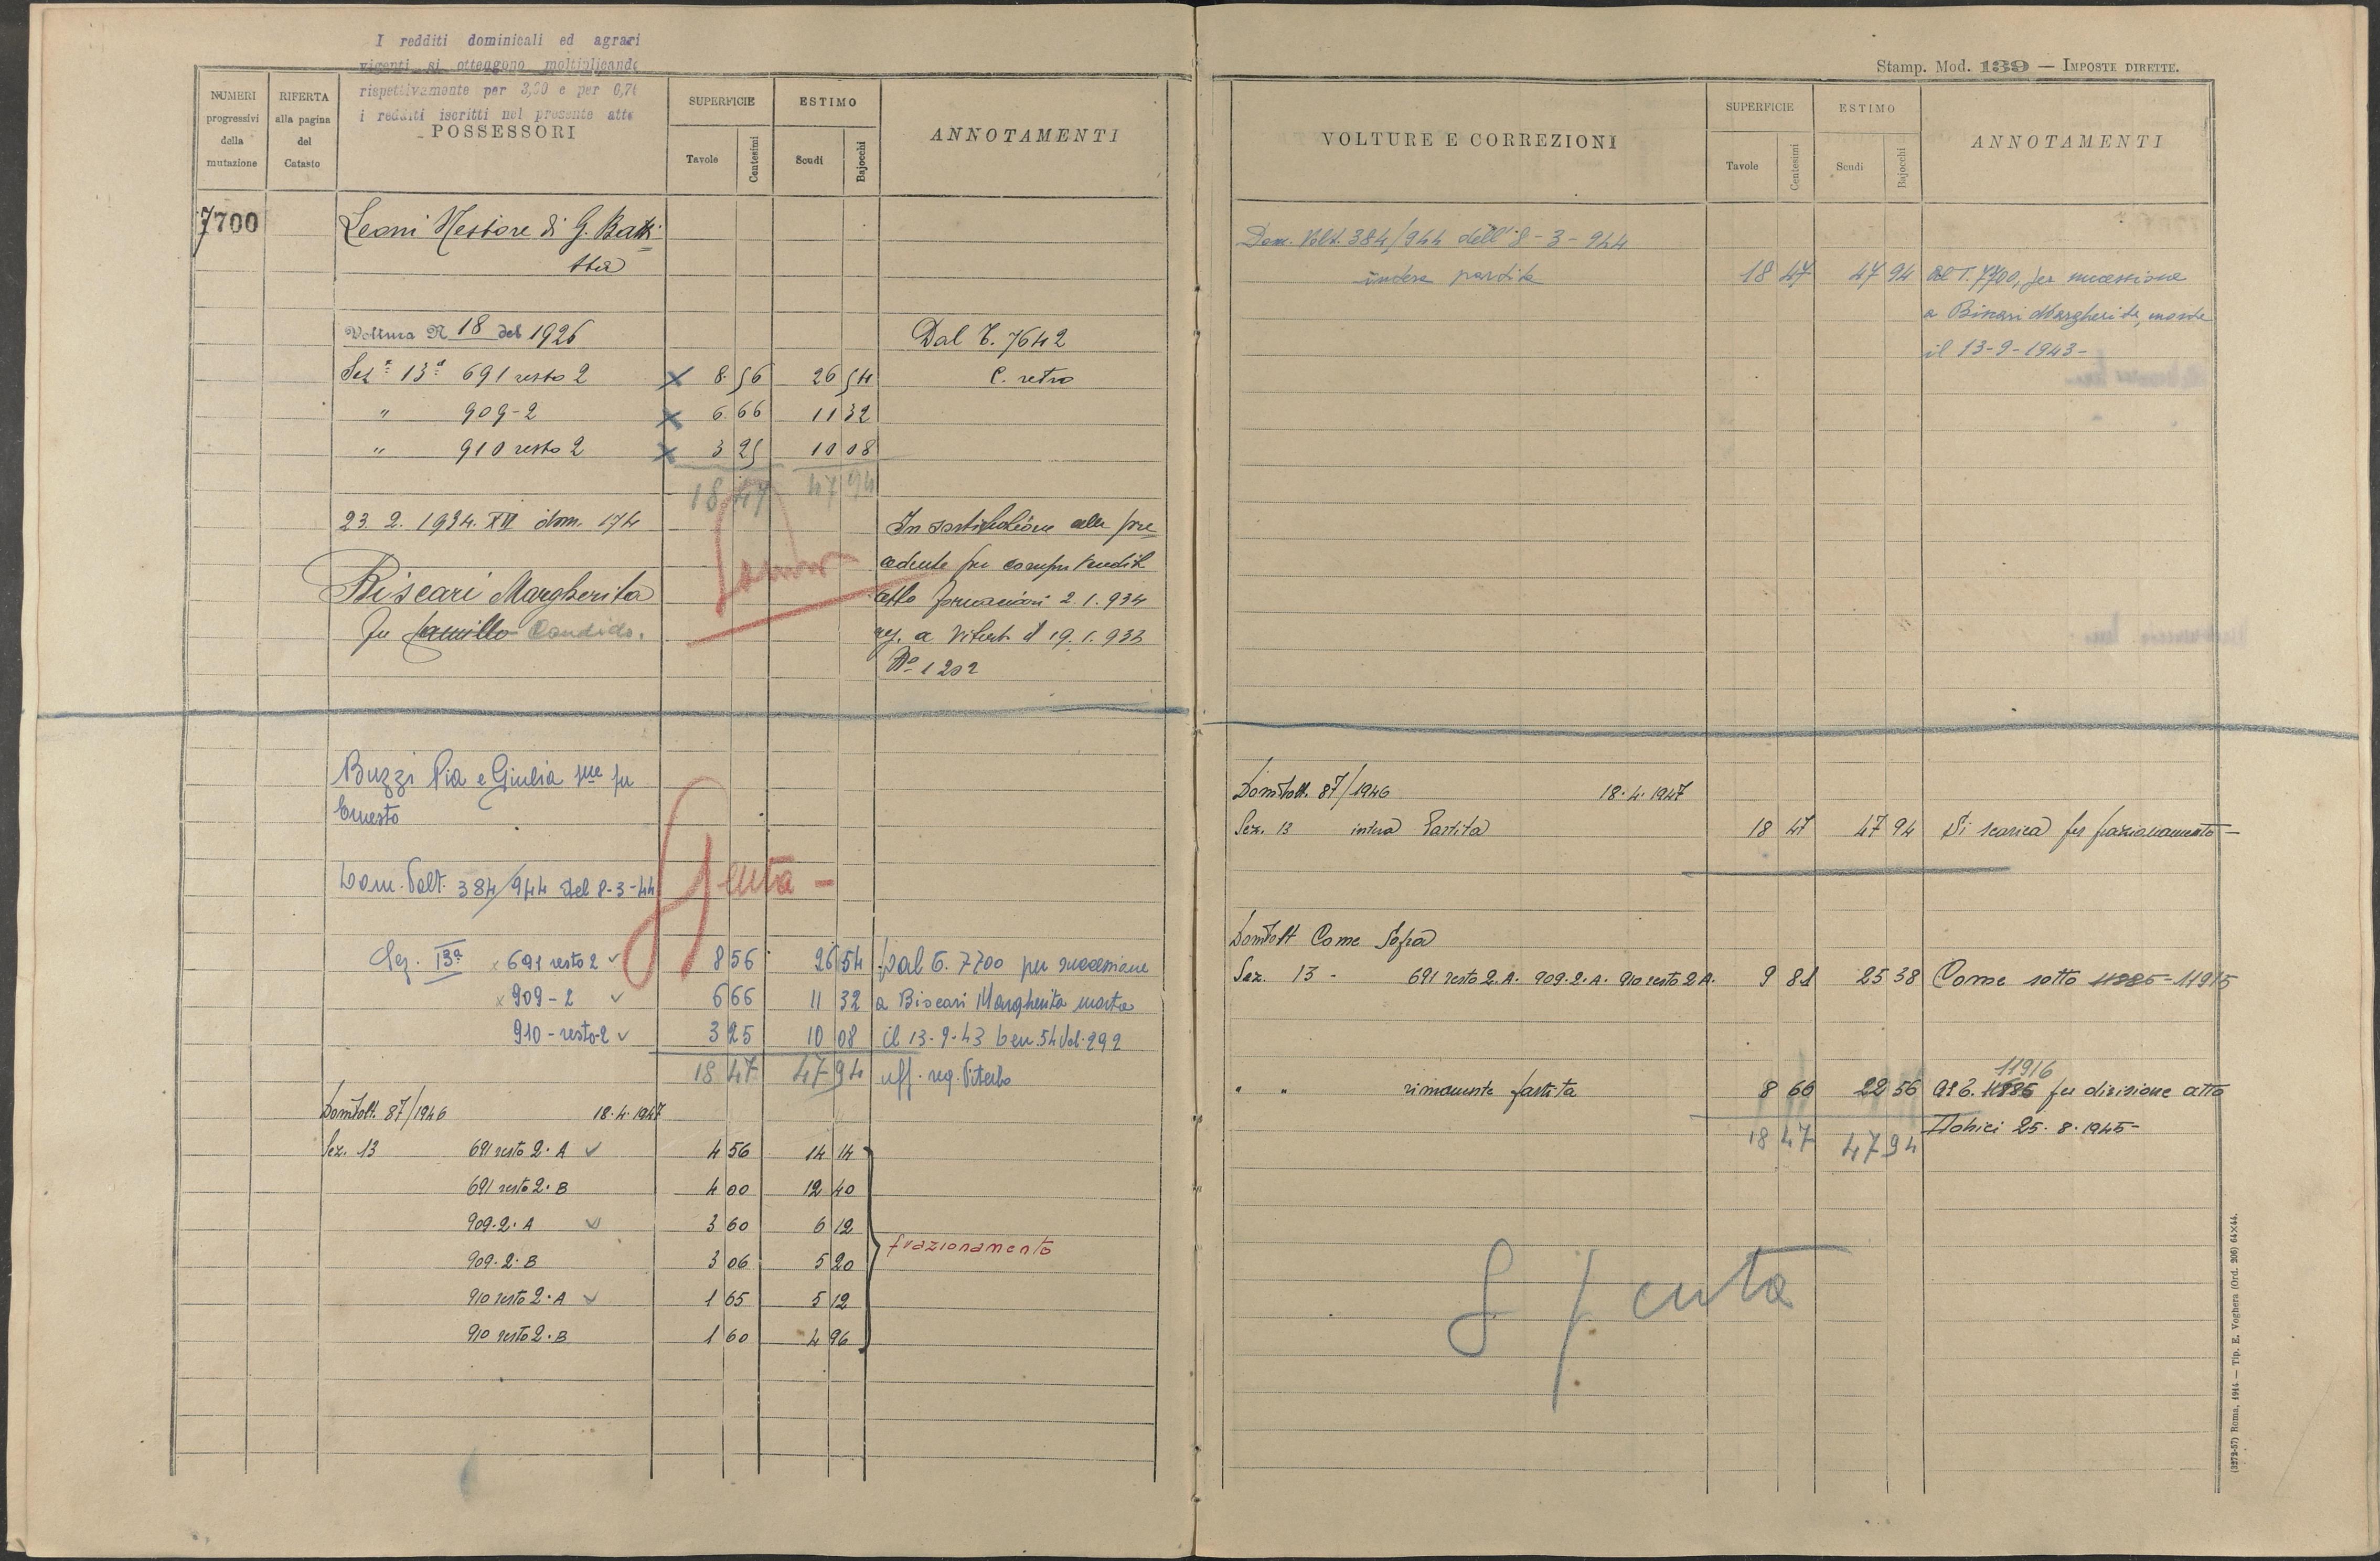 I redditi dominicali ed agrari
vigenti si ottengono moltiplicando
rispettivamente per 3,20 e per 0,70
i redditi iscritti nel presente atto
NUMERI progressivi della mutazione
RIFERTA alla pagina del Catasto
POSSESSORI
SUPERFICIE
Tavole
Centesimi
ESTIMO
Scudi
Bajocchi
ANNOTAMENTI
7700
Leoni Nestore di G. Batti
sta
Voltura N 18 del 1926
Dal T. 7642
Sez.e 13a 691 resto 2 8.56 26 54 C. retro
" 909-2 6 66 11 32
" 910 resto 2 3 25 10 08
18 47 47 94
23. 2. 1934. XII dom. 174
In sostituzione alla pre
cedente per compra vendita
Biscari Margherita
atto 2. 1. 934
fu Camillo Candido.
reg. a Viterb. il 19. 1. 933
No 1202
Buzzi Pia e Giulia sue fu
Ernesto
Dom. Volt. 384/944 del 8-3-44
Spenta -
Sez. 13a 691 resto 2 8 56 26 54 Dal T. 7700 per successione
909-2 6 66 11 32 a Biscari Margherita morta
910-resto-2 3 25 10 08 il 13-9-43 den. 54 Vol. 292
18 47 47 94 uff. reg. Viterbo
DomVolt. 87/1946 18.4.1947
Sez. 13 691 resto 2. A 4 56 14 14
691 resto 2. B 4 00 12 40
909. 2. A 3 60 6 12
frazionamento
909. 2. B 3 06 5 20
910 resto 2. A 1 65 5 12
910 resto 2. B 1 60 4 96
Stamp. Mod. 139 — IMPOSTE DIRETTE.
VOLTURE E CORREZIONI
SUPERFICIE
Tavole
Centesimi
ESTIMO
Scudi
Bajocchi
ANNOTAMENTI
Dom. Volt. 384/944 dell' 8-3-944
intera partita 18 47 47 94 Al T. 7700, per successione
a Biscari Margherita, morta
il 13-9-1943-
DomVolt. 87/1946 18.4.1947
Sez. 13 intera Partita 18 47 47 94 Si scarica per frazionamento -
DomVolt Come Sopra
Sez. 13 - 691 resto 2. A. 909. 2. A. 910 resto 2 A. 9 81 25 38 Come sotto 11885 = 11915
11916
" " rimanente partita 8 66 22 56 Al T. 11886 per divisione atto
18 47 47 94 25. 8. 1945-
Spenta
(3272-57) Roma, 1914 — Tip. E. Voghera (Ord. 206) 64×44.